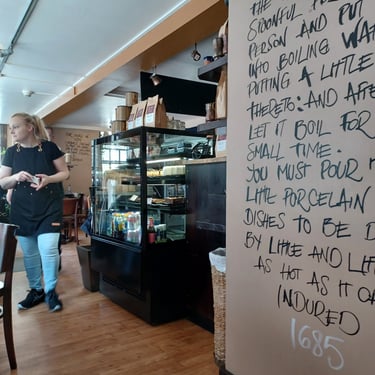 THE
SPOONFUL
PERSON AND PUT
INTO BOILING WAT
PUTTING A LITTLE
THERETO: AND AFTE
LET IT BOIL FOR
SMALL TIME.
YOU MUST POUR
LITTL PORCELAIN
DISHES TO BE D
BY LITTLE AND LITT
AS HOT AS IT CA
INDURED
1685